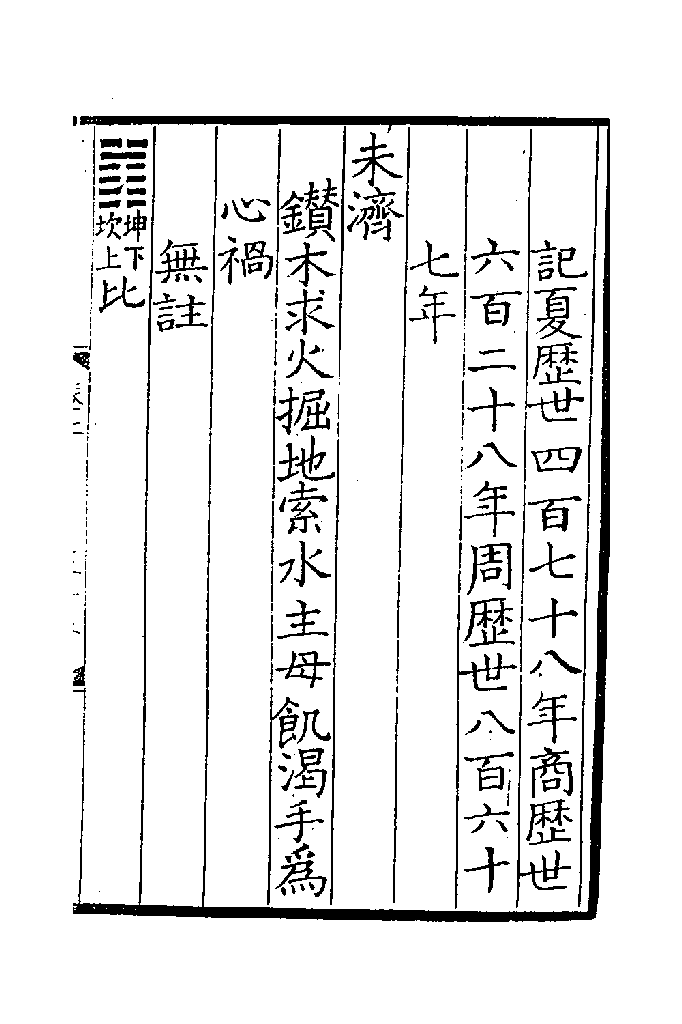 記夏歴世四百七十八年商歴世
六百二十八年周歴世八百六十
七年
未濟
鑚木求火掘地索水主母飢渴手爲
心禍
無註
坤下
坎上
比